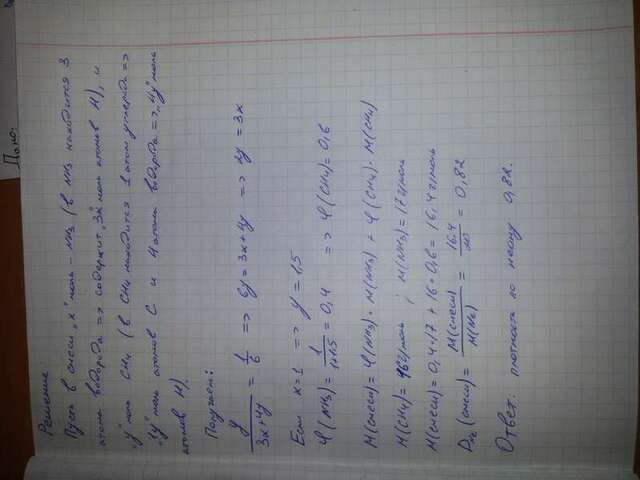 Дано:
Решение
Пусть в смеси "x" моль - NH3 (в NH3 находится 3
атома водорода => содержит "3x" моль атомов H), и
"y" моль CH4 (в CH4 находится 1 атом углерода =>
"1y" моль атомов C и 4 атома водорода => "4y" моль
атомов H).
Получаем:
y/(3x+4y) = 1/6 => 6y = 3x+4y => 2y = 3x
Если x=1 => y = 1,5
φ(NH3) = 1/(1+1,5) = 0,4 => φ(CH4) = 0,6
M(смеси) = φ(NH3) · M(NH3) + φ(CH4) · M(CH4)
M(CH4) = 16 г/моль ; M(NH3) = 17 г/моль
M(смеси) = 0,4·17 + 16·0,6 = 16,4 г/моль
DNe (смеси) = M(смеси)/M(Ne) = 16,4/20 = 0,82
Ответ: плотность по неону 0,82.